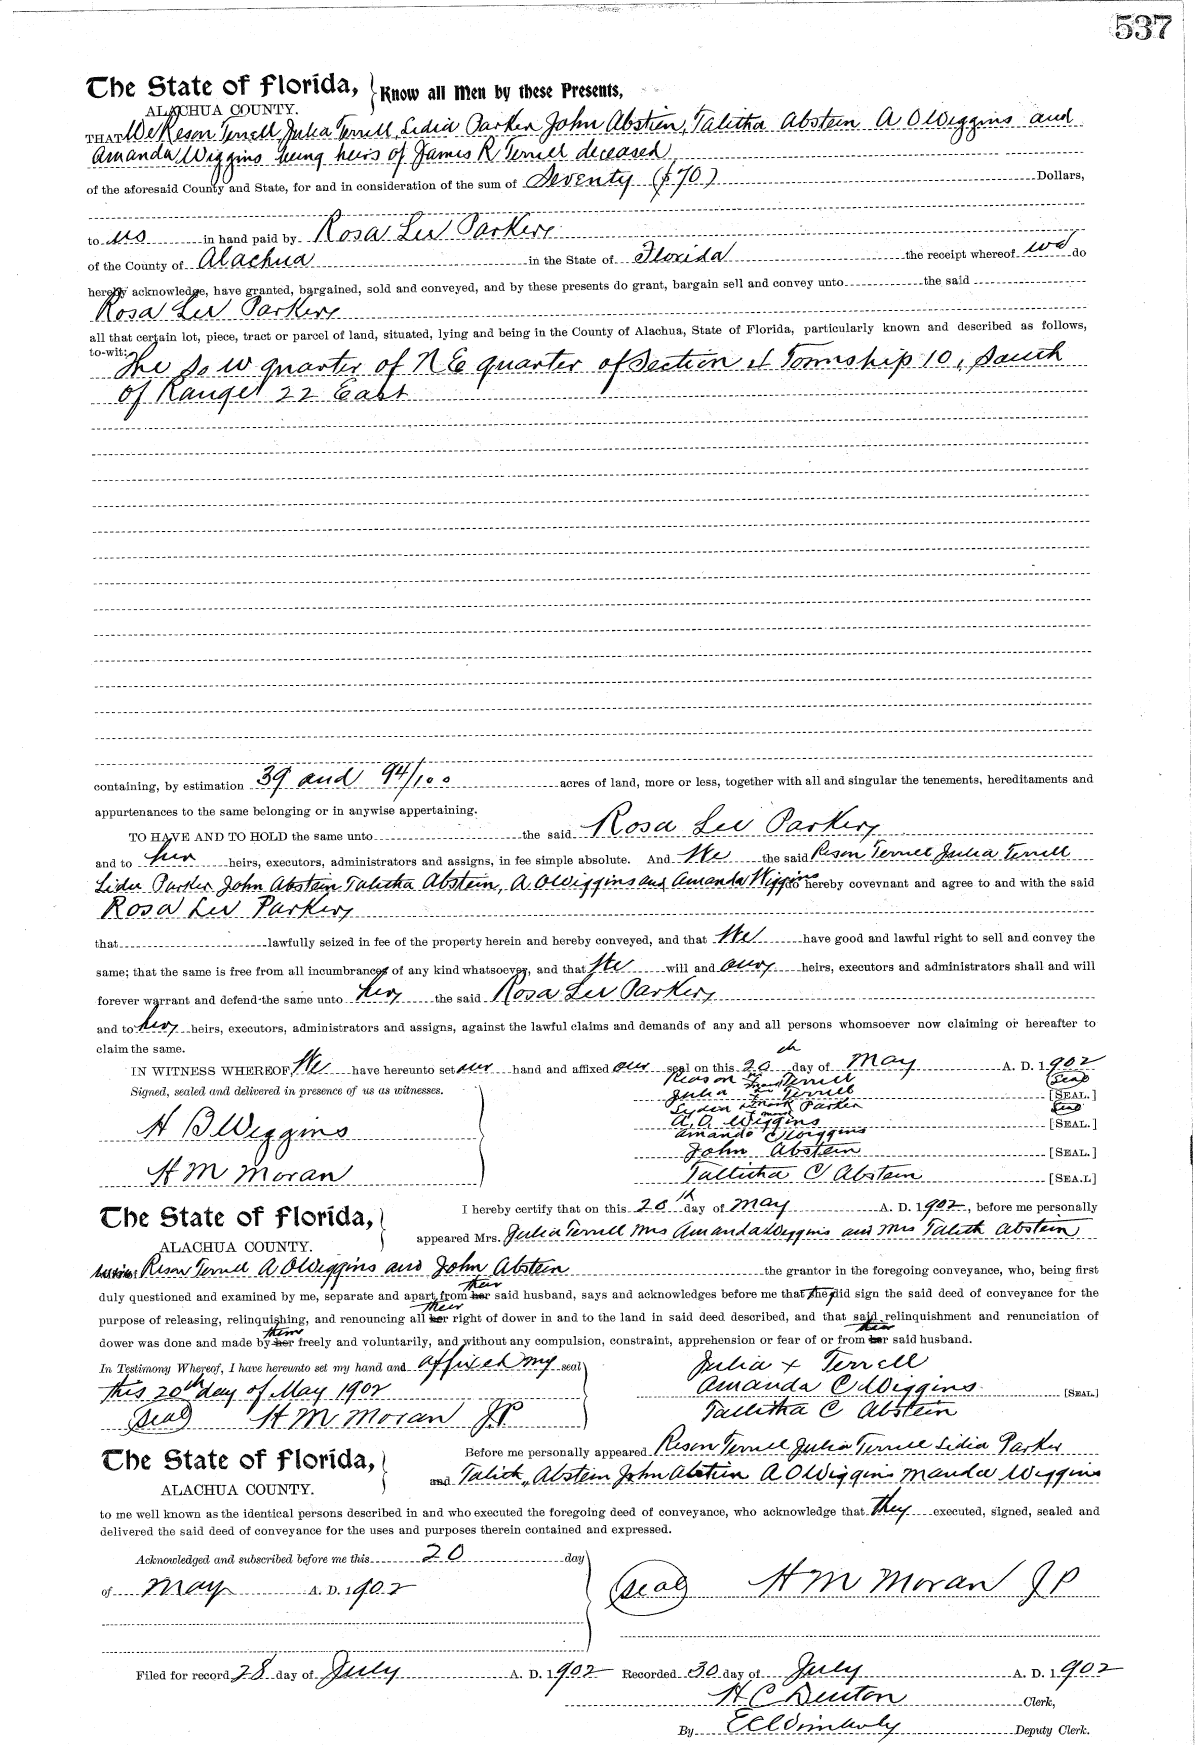 537
The State of Florida, } Know all Men by these Presents,
ALACHUA COUNTY.
THAT We Reson Terrell, Julia Terrell, Lidia Parker John Abstien, Talitha Abstein A O Wiggins and
Amanda Wiggins being heirs of James R Terrell deceased
of the aforesaid County and State, for and in consideration of the sum of Seventy ($70) Dollars,
to us in hand paid by Rosa Lee Parker
of the County of Alachua in the State of Florida the receipt whereof we do
hereby acknowledge, have granted, bargained, sold and conveyed, and by these presents do grant, bargain sell and convey unto the said
Rosa Lee Parker
all that certain lot, piece, tract or parcel of land, situated, lying and being in the County of Alachua, State of Florida, particularly known and described as follows,
to-wit: The So W quarter of N E quarter of Section 4 Township 10, South
of Range 22 East
containing, by estimation 39 and 94/100 acres of land, more or less, together with all and singular the tenements, hereditaments and
appurtenances to the same belonging or in anywise appertaining.
TO HAVE AND TO HOLD the same unto the said Rosa Lee Parker
and to her heirs, executors, administrators and assigns, in fee simple absolute. And We the said Reson Terrell Julia Terrell
Lidia Parker John Abstein Talitha Abstein, A O Wiggins and Amanda Wiggins do hereby covevnant and agree to and with the said
Rosa Lee Parker
that lawfully seized in fee of the property herein and hereby conveyed, and that We have good and lawful right to sell and convey the
same; that the same is free from all incumbrances of any kind whatsoever, and that We will and our heirs, executors and administrators shall and will
forever warrant and defend the same unto her the said Rosa Lee Parker
and to her heirs, executors, administrators and assigns, against the lawful claims and demands of any and all persons whomsoever now claiming or hereafter to
claim the same.
IN WITNESS WHEREOF, We have hereunto set our hand and affixed our seal on this 20th day of May A. D. 1902
Signed, sealed and delivered in presence of us as witnesses.
Reason Terrell (Seal)
Julia Terrell [SEAL.]
Lyden Parker (Seal)
H B Wiggins
A. O. Wiggins [SEAL.]
Amanda C Wiggins
John Abstein [SEAL.]
H M Moran
Tallitha C Abstein [SEA.L]
The State of Florida,
ALACHUA COUNTY.
I hereby certify that on this 20th day of May A. D. 1902, before me personally
appeared Mrs. Julia Terrell Mrs Amanda Wiggins and Mrs Talith Abstein
Reson Terrell A O Wiggins and John Abstein the grantor in the foregoing conveyance, who, being first
duly questioned and examined by me, separate and apart from her their said husband, says and acknowledges before me that they did sign the said deed of conveyance for the
purpose of releasing, relinquishing, and renouncing all her their right of dower in and to the land in said deed described, and that said relinquishment and renunciation of
dower was done and made by her them freely and voluntarily, and without any compulsion, constraint, apprehension or fear of or from her their said husband.
In Testimony Whereof, I have hereunto set my hand and affixed my seal
this 20th day of May 1902
(Seal) H M Moran J P
Julia x Terrell
Amanda C Wiggins [SEAL.]
Tallitha C Abstein
The State of Florida,
ALACHUA COUNTY.
Before me personally appeared Reson Terrell Julia Terrell Lidia Parker
and Talith Abstein John Abstein A O Wiggins Manda Wiggins
to me well known as the identical persons described in and who executed the foregoing deed of conveyance, who acknowledge that they executed, signed, sealed and
delivered the said deed of conveyance for the uses and purposes therein contained and expressed.
Acknowledged and subscribed before me this 20 day
of May A. D. 1902
(Seal) H M Moran J P
Filed for record 28 day of July A. D. 1902 Recorded 30 day of July A. D. 1902
H C Denton Clerk,
By E C Wimberly Deputy Clerk.